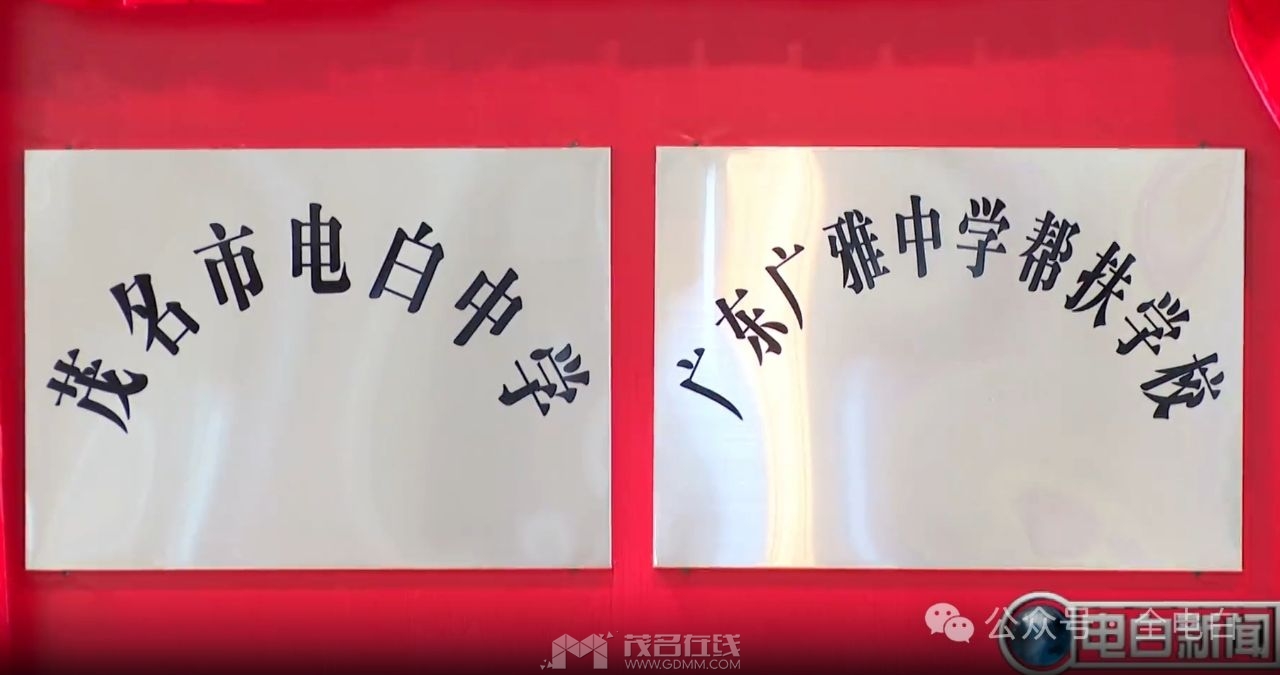 茂名市电白中学
广东广雅中学帮扶学校
公众号 · 全电白
电白新闻
茂名在线
WWW.GDMM.COM